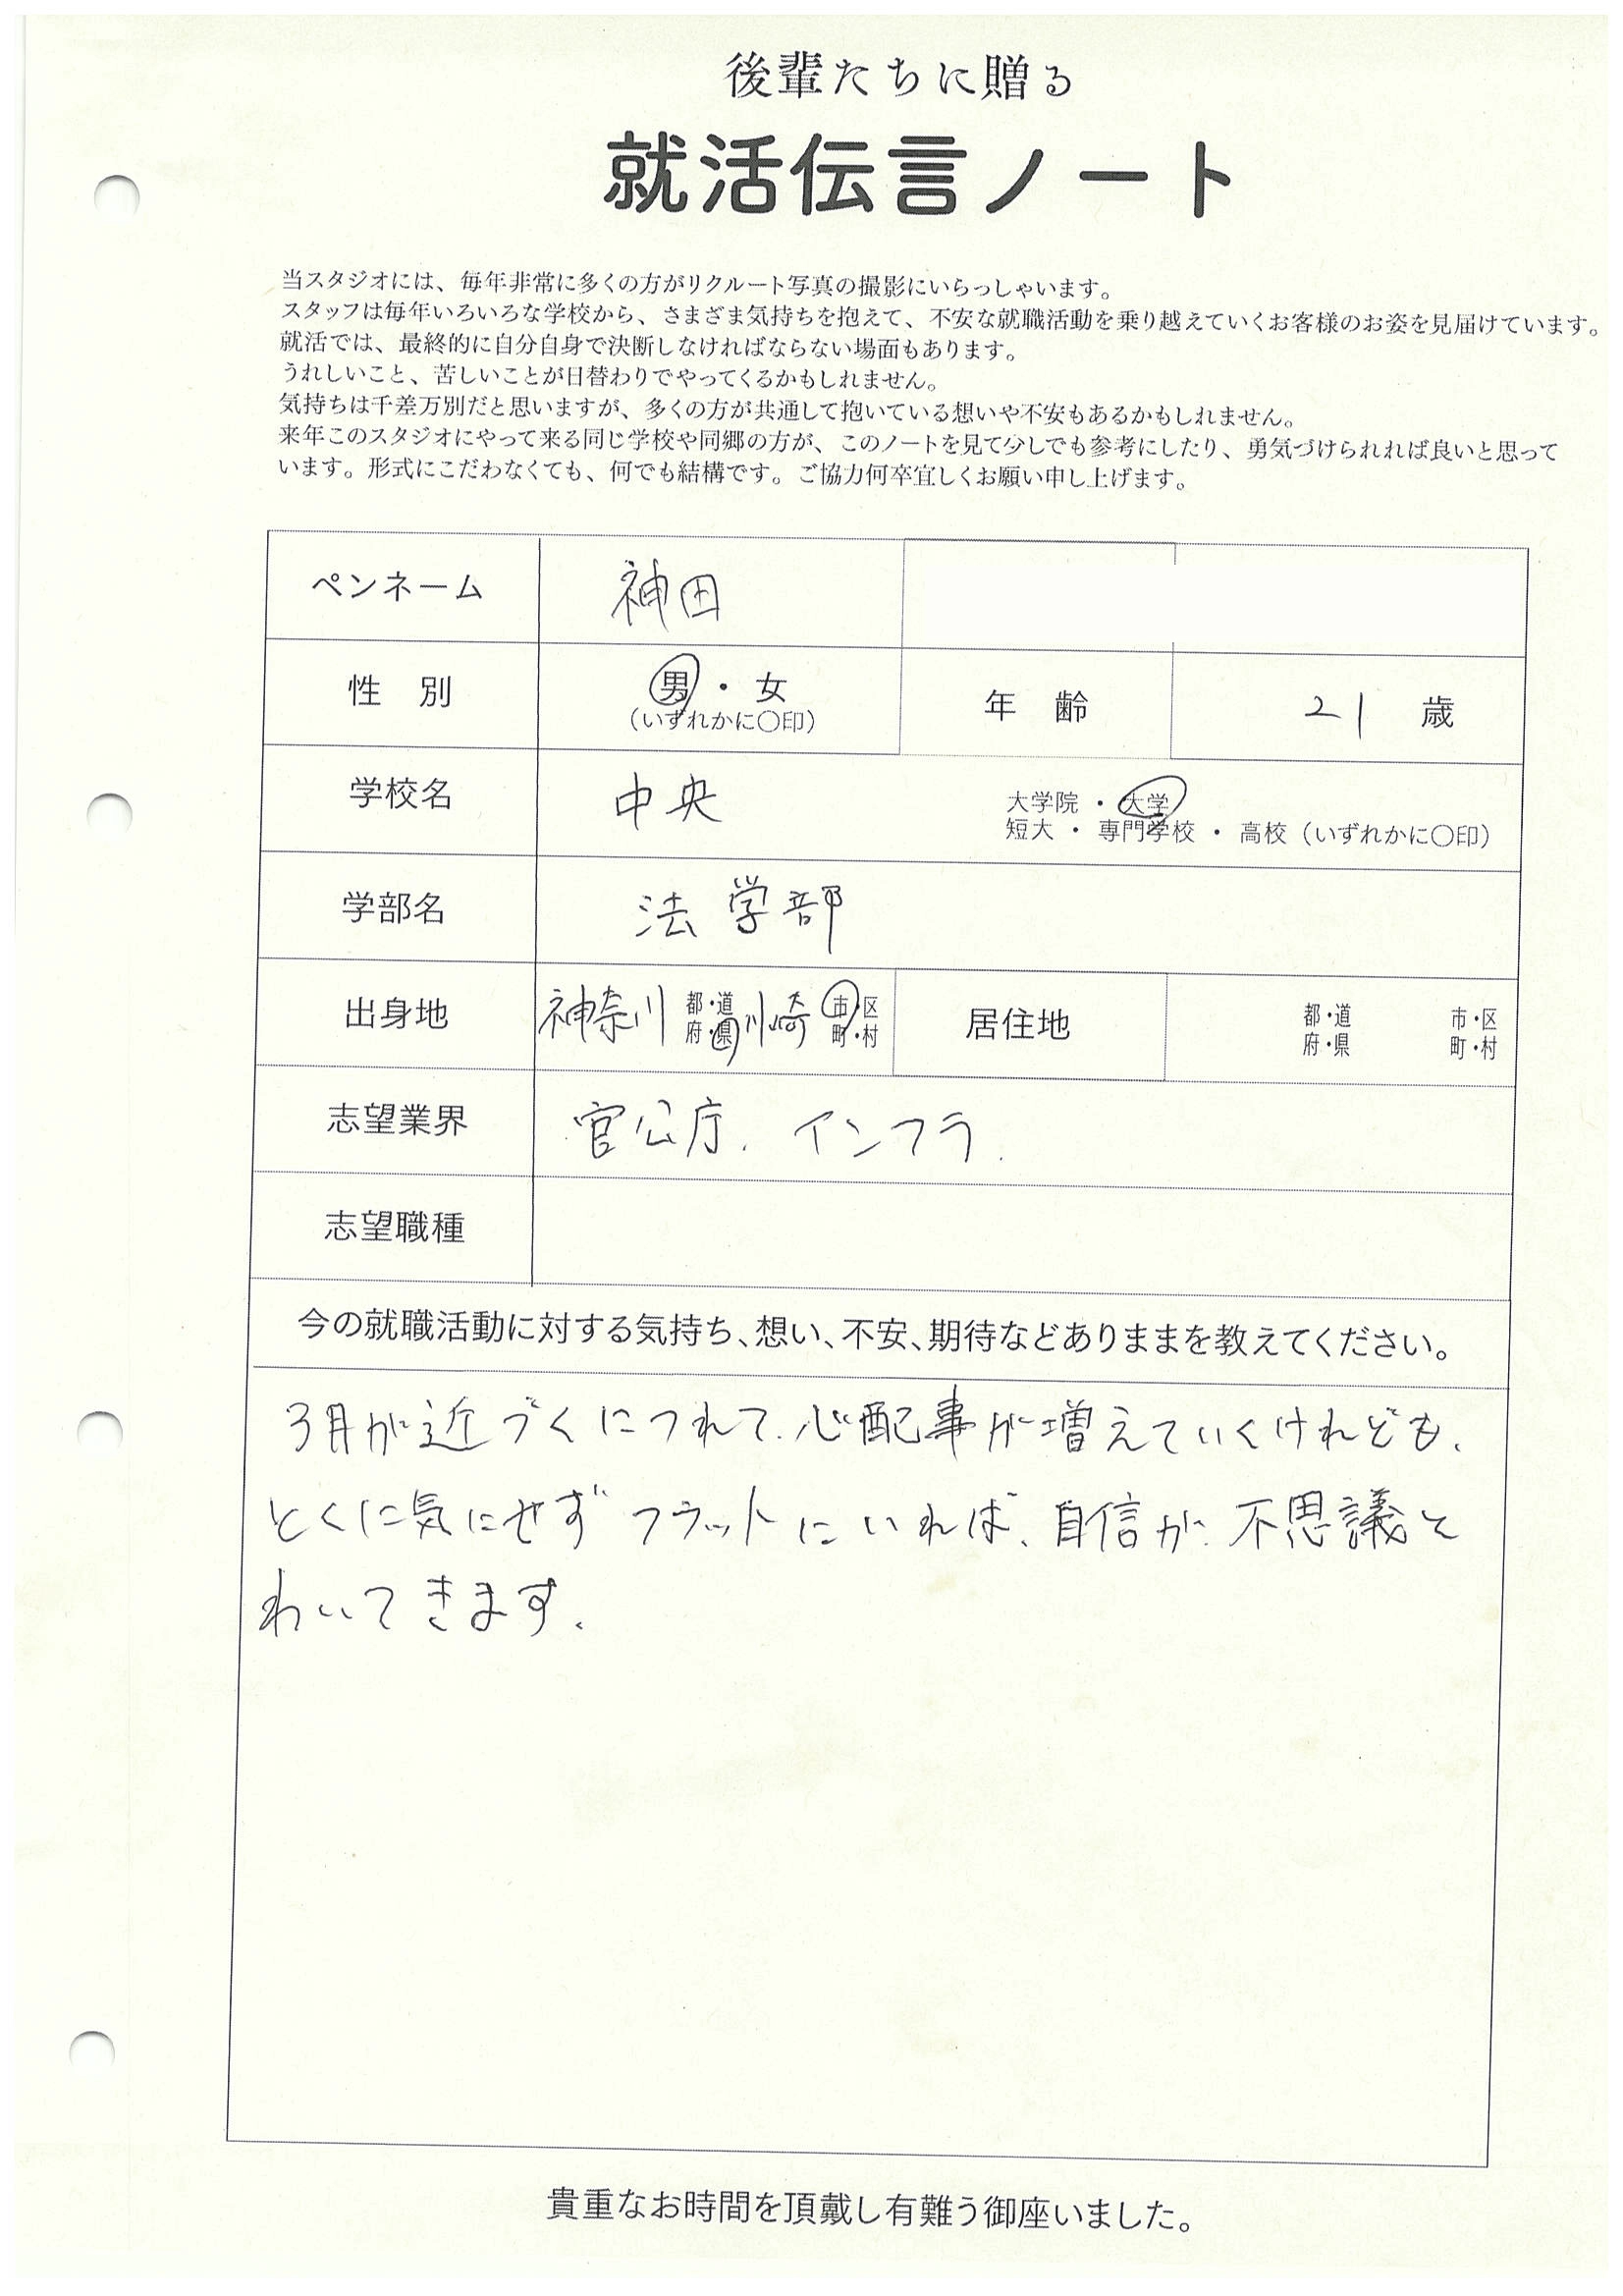 後輩たちに贈る
就活伝言ノート
当スタジオには、毎年非常に多くの方がリクルート写真の撮影にいらっしゃいます。
スタッフは毎年いろいろな学校から、さまざま気持ちを抱えて、不安な就職活動を乗り越えていくお客様のお姿を見届けています。
就活では、最終的に自分自身で決断しなければならない場面もあります。
うれしいこと、苦しいことが日替わりでやってくるかもしれません。
気持ちは千差万別だと思いますが、多くの方が共通して抱いている想いや不安もあるかもしれません。
来年このスタジオにやって来る同じ学校や同郷の方が、このノートを見て少しでも参考にしたり、勇気づけられれば良いと思って
います。形式にこだわなくても、何でも結構です。ご協力何卒宜しくお願い申し上げます。
ペンネーム 神田
性 別 男・女 年 齢 21 歳
(いずれかに〇印)
学校名 中央 大学院・大学
短大・専門学校・高校(いずれかに〇印)
学部名 法学部
出身地 神奈川 都・道 川崎 市・区 居住地 都・道 市・区
府・県 町・村 府・県 町・村
志望業界 官公庁.インフラ.
志望職種
今の就職活動に対する気持ち、想い、不安、期待などありままを教えてください。
3月が近づくにつれて、心配事が増えていくけれども、
とくに気にせずフラットにいれば、自信が、不思議と
わいてきます.
貴重なお時間を頂戴し有難う御座いました。